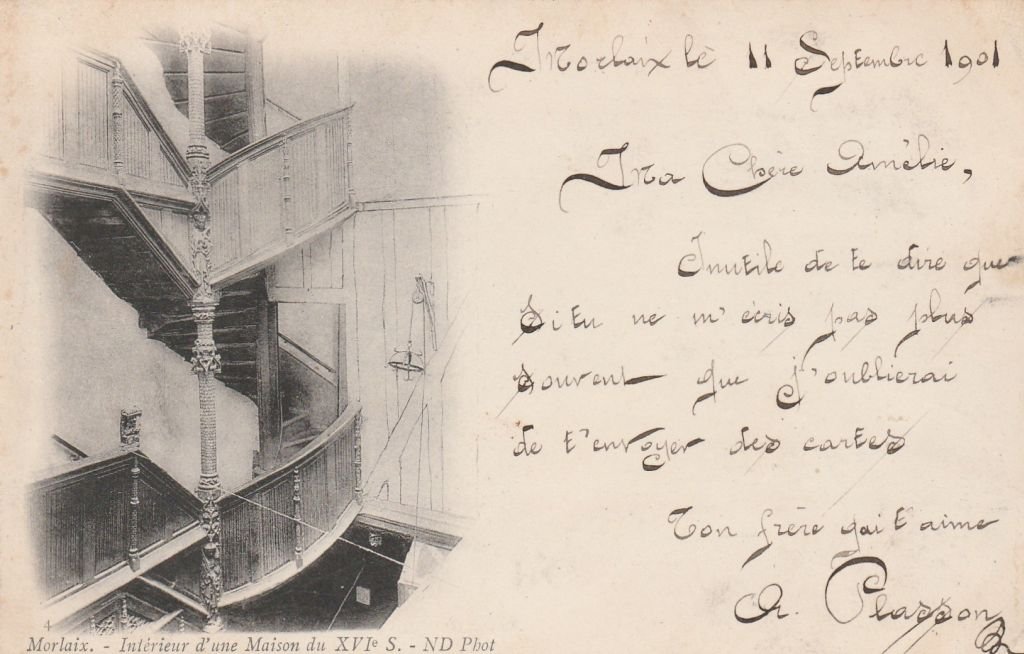 Morlaix le 11 Septembre 1901
Ma Chère Amélie,
Inutile de te dire que
si tu ne m'écris pas plus
souvent que j'oublierai
de t'envoyer des cartes
Ton frère qui t'aime
A. Plasson
4
Morlaix. - Intérieur d'une Maison du XVIe S. - ND Phot